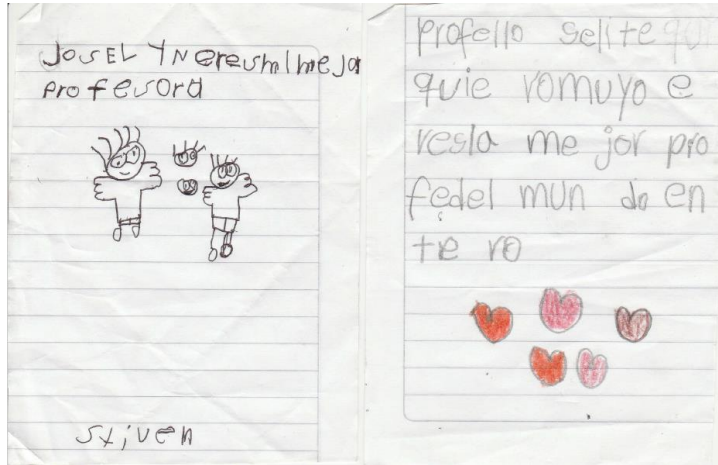 JOSEL YNeresmimejor
profesora
stiven
profello selite
quie romuyo e
resla me jor pro
fedel mun do en
te ro